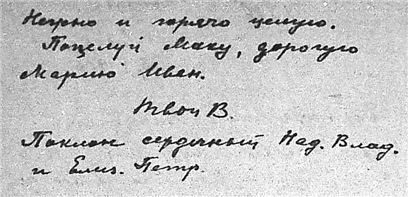 Нежно и горячо целую.
Поцелуй Маку, дорогую
Марию Иван.
Твой В.
Поклон сердечный Над. Влад.
и Елиз. Петр.